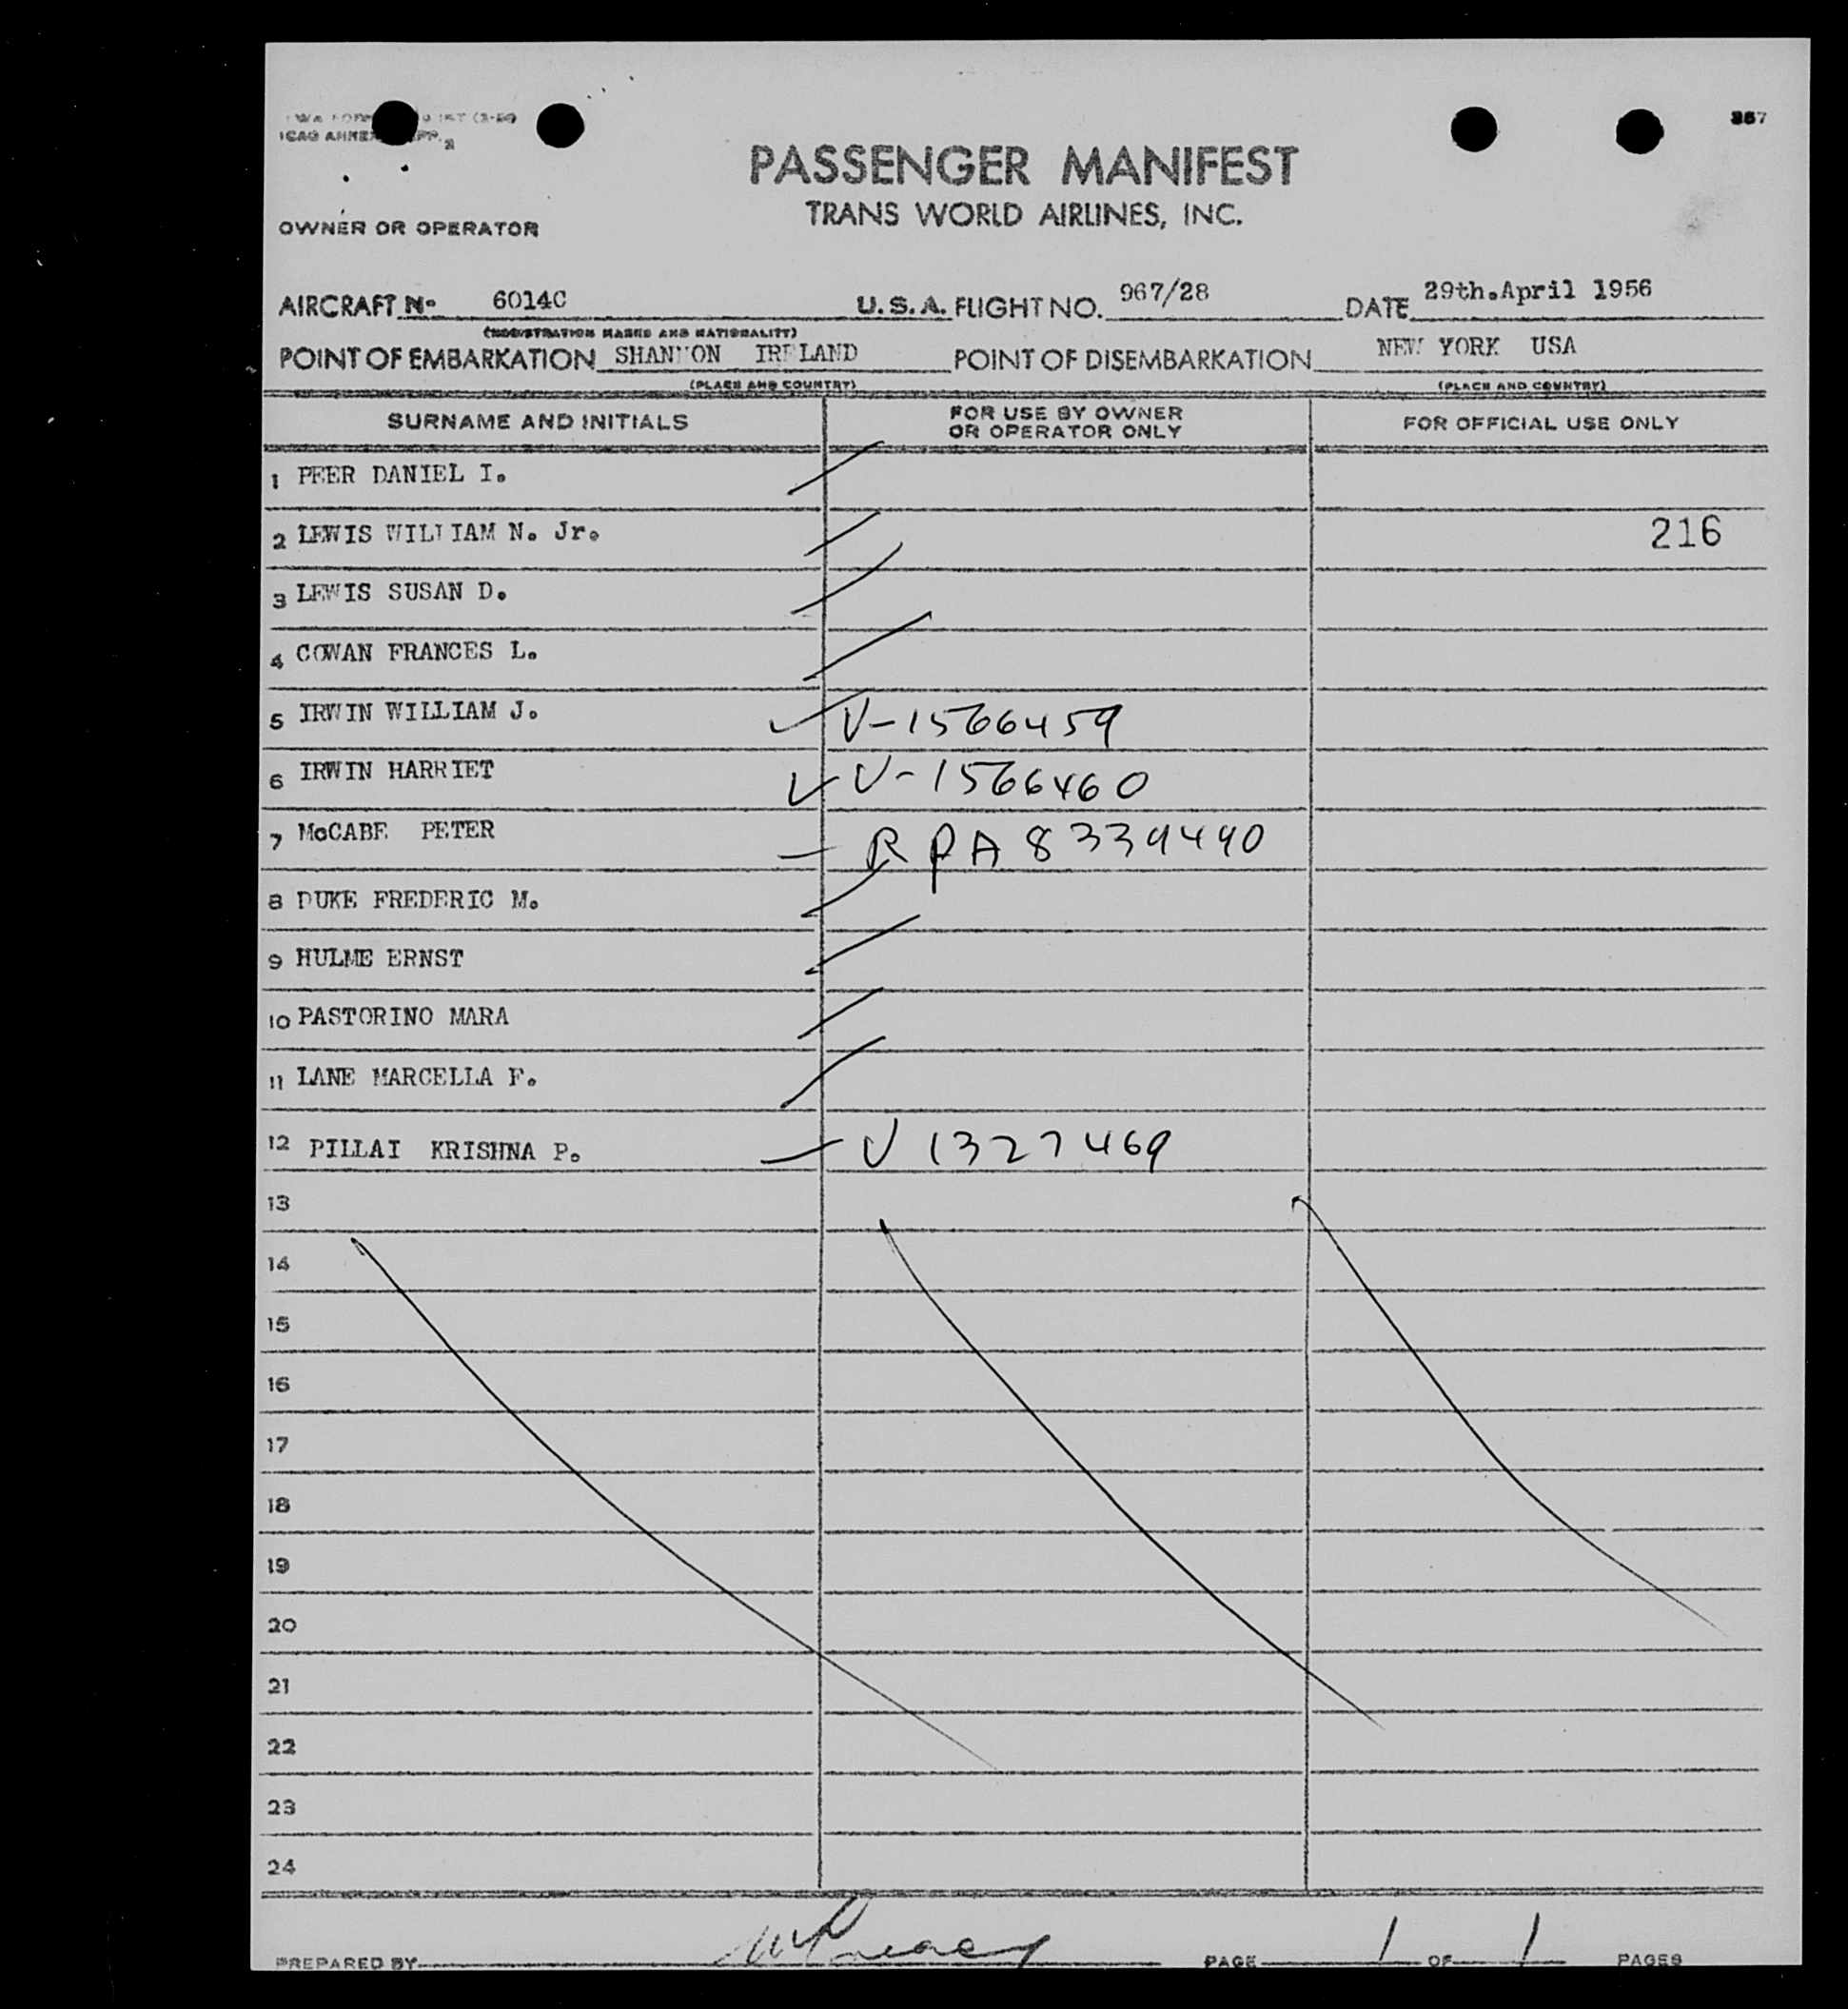 ICAO ANNEX
PASSENGER MANIFEST
TRANS WORLD AIRLINES, INC.
OWNER OR OPERATOR
AIRCRAFT No 6014C U.S.A. FLIGHT NO. 967/28 DATE 29th.April 1956
(REGISTRATION MARKS AND NATIONALITY)
POINT OF EMBARKATION SHANNON IRELAND POINT OF DISEMBARKATION NEW YORK USA
(PLACE AND COUNTRY) (PLACE AND COUNTRY)
SURNAME AND INITIALS FOR USE BY OWNER OR OPERATOR ONLY FOR OFFICIAL USE ONLY
1 PEER DANIEL I.
2 LEWIS WILLIAM N. Jr. 216
3 LEWIS SUSAN D.
4 COWAN FRANCES L.
5 IRWIN WILLIAM J. V-1566459
6 IRWIN HARRIET V-1566460
7 McCABE PETER RPA 8339490
8 DUKE FREDERIC M.
9 HULME ERNST
10 PASTORINO MARA
11 LANE MARCELLA F.
12 PILLAI KRISHNA P. V 1327469
13
14
15
16
17
18
19
20
21
22
23
24
PREPARED BY PAGE 1 OF 1 PAGES